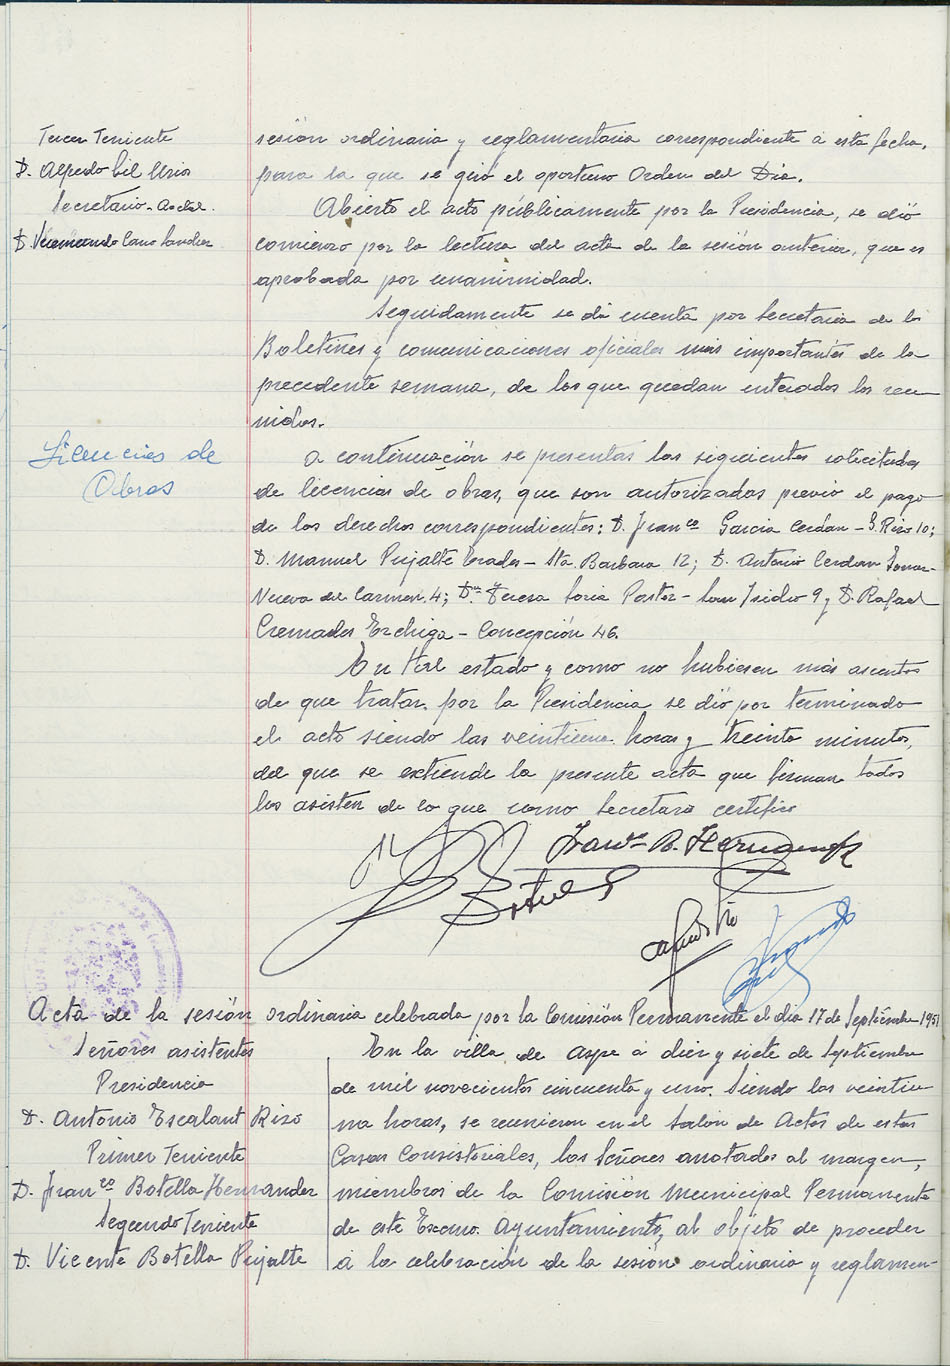 Tercer Teniente
D. Alfredo Gil Urios
Secretario-Acctal.
D. Veremundo Cano Sanchez
sesión ordinaria y reglamentaria correspondiente á esta fecha,
para la que se giró el oportuno Orden del Dia.
Abierto el acto públicamente por la Presidencia, se dió
comienzo por la lectura del acta de la sesión anterior, que es
aprobada por unanimidad.
Seguidamente se dá cuenta por Secretaria de los
Boletines y comunicaciones oficiales más importantes de la
precedente semana, de los que quedan enterados los reu-
nidos.
Licencias de
Obras
A continuación se presentas las siguientes solicitudes
de licencias de obras, que son autorizadas previo el pago
de los derechos correspondientes: D. Franco Garcia Cerdan - S. Rizo 10;
D. Manuel Pujalte Prades - Sta. Barbara 12; D. Antonio Cerdan
Nueva del Carmen 4; Dª Teresa Soria Pastor - San Isidro 9 y D. Rafael
Cremades Erchiga - Concepción 46.
En tal estado y como no hubiesen más asuntos
de que tratar, por la Presidencia se dió por terminado
el acto siendo las veintiuna horas y treinta minutos,
del que se extiende la presente acta que firman todos
los asisten de lo que como Secretario certifico
Franco B. Hernandez
Botella
Acta de la sesión ordinaria celebrada por la Comisión Permanente el dia 17 de Septiembre 1951
Señores asistentes
Presidencia
D. Antonio Escalant Rizo
Primer Teniente
D. Franco Botella Hernandez
Segundo Teniente
D. Vicente Botella Pujalte
En la villa de Aspe á diez y siete de Septiembre
de mil novecientos cincuenta y uno. Siendo las veintiu-
na horas, se reunieron en el Salon de Actos de estas
Casas Consistoriales, los Señores anotados al margen,
miembros de la Comisión Municipal Permanente
de este Excmo. Ayuntamiento, al objeto de proceder
á la celebración de la sesión ordinaria y reglamen-